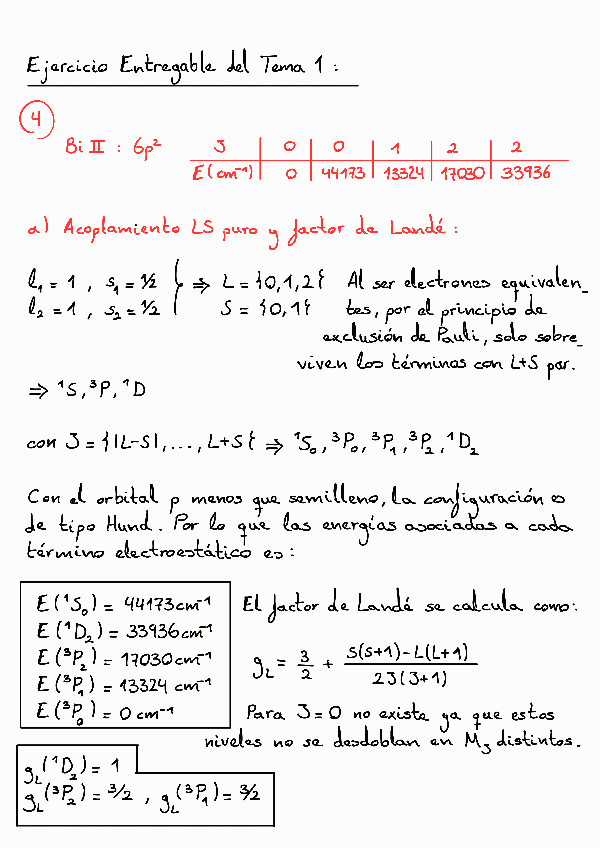 Ejercicio Entregable del Tema 1 :
4
Bi II : 6p² J | 0 | 0 | 1 | 2 | 2
E(cm⁻¹) | 0 | 44173 | 13324 | 17030 | 33936
a) Acoplamiento LS puro y factor de Landé :
l₁ = 1 , s₁ = ½ } ⇒ L = {0,1,2} Al ser electrones equivalen_
l₂ = 1 , s₂ = ½ S = {0,1} tes, por el principio de
exclusión de Pauli, solo sobre_
viven los términos con L+S par.
⇒ ¹S, ³P, ¹D
con J = {|L-S|, ..., L+S} ⇒ ¹S₀, ³P₀, ³P₁, ³P₂, ¹D₂
Con el orbital p menos que semilleno, la configuración es
de tipo Hund. Por lo que las energías asociadas a cada
término electroestático es:
E(¹S₀) = 44173 cm⁻¹ El factor de Landé se calcula como:
E(¹D₂) = 33936 cm⁻¹
E(³P₂) = 17030 cm⁻¹ g_L = 3/2 + (S(S+1)-L(L+1))/(2J(J+1))
E(³P₁) = 13324 cm⁻¹
E(³P₀) = 0 cm⁻¹ Para J=0 no existe ya que estos
niveles no se desdoblan en M_J distintos.
g_L(¹D₂) = 1
g_L(³P₂) = 3/2 , g_L(³P₁) = 3/2